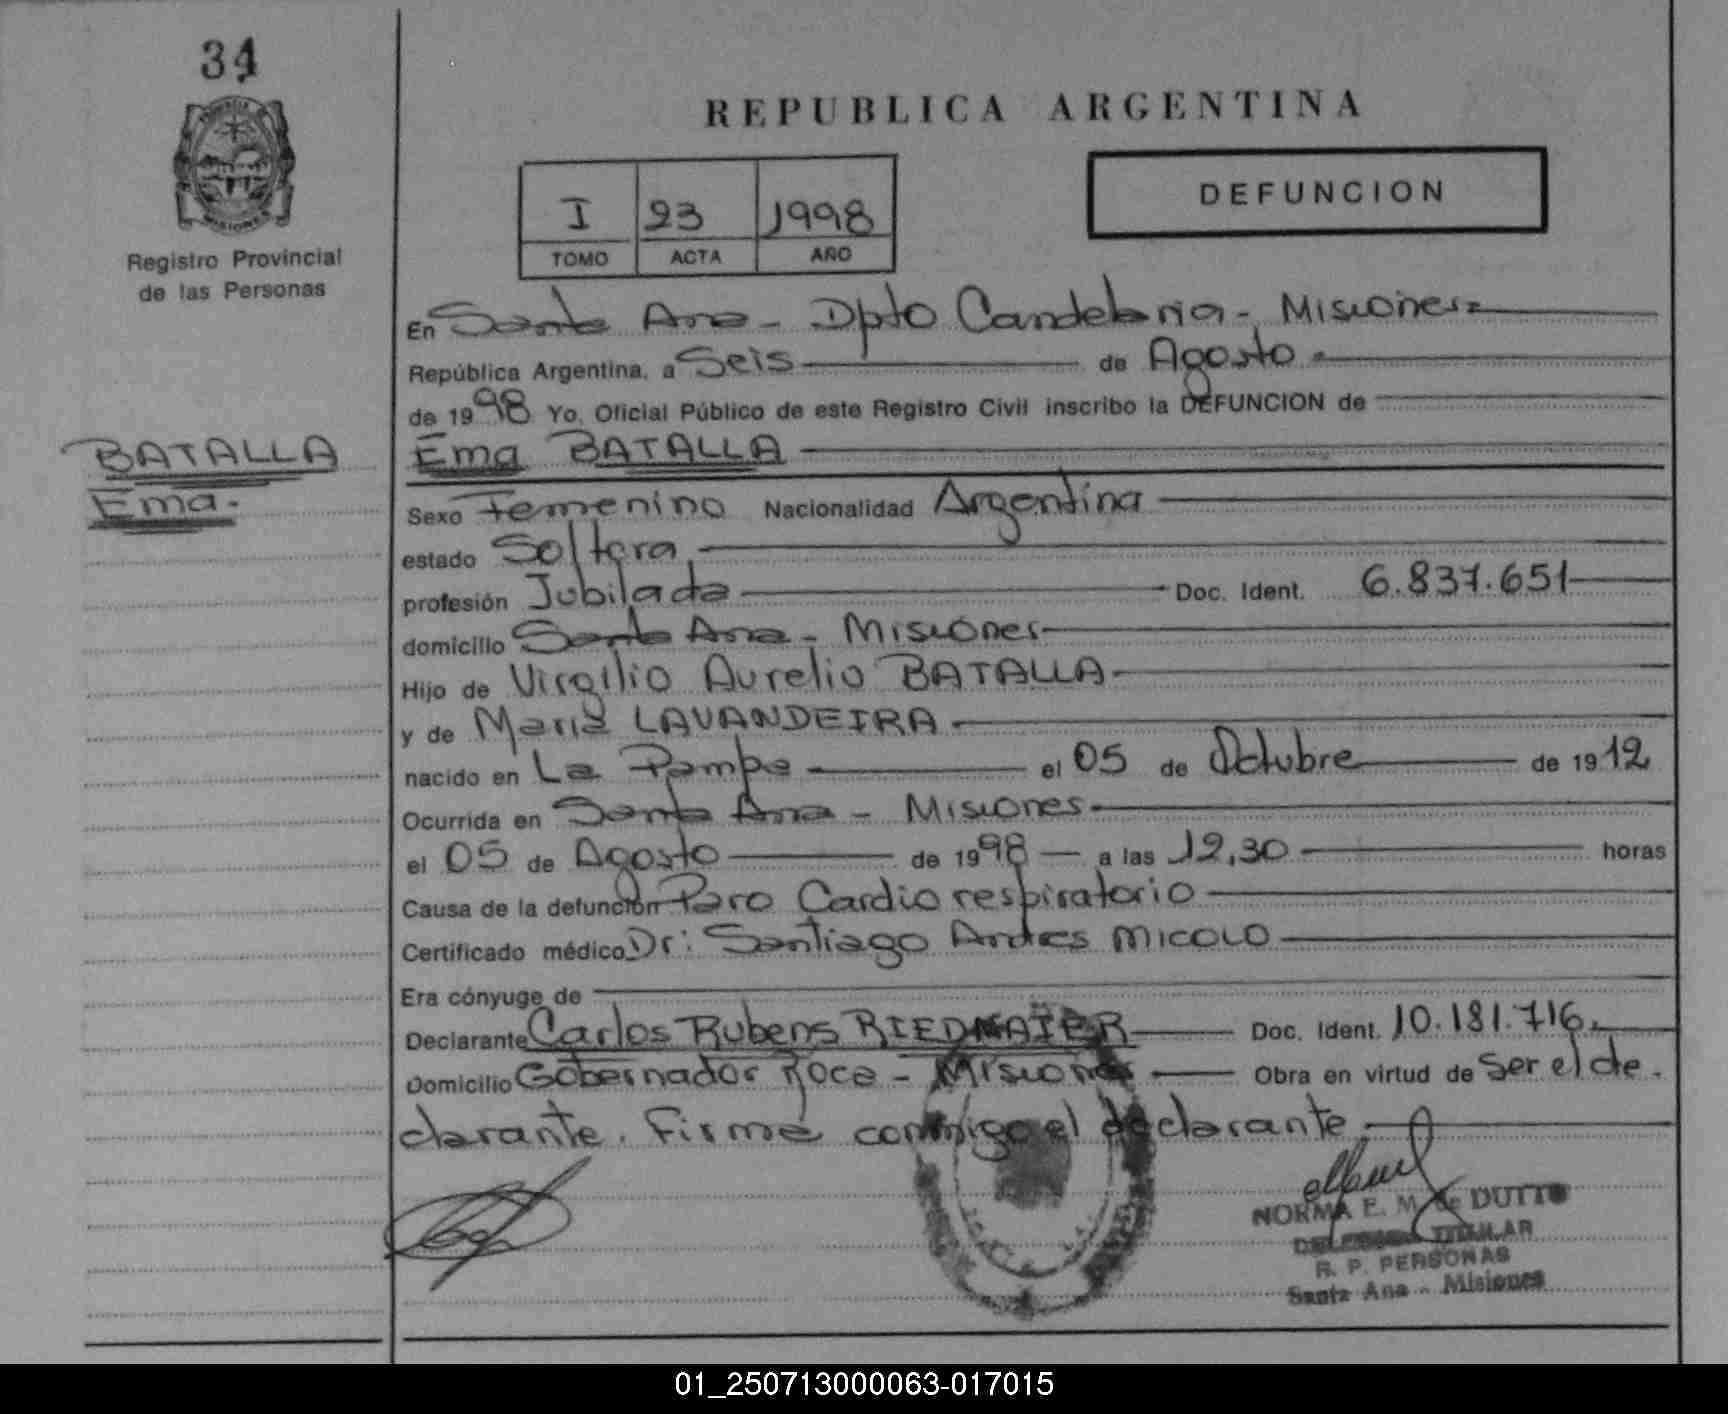 34
REPUBLICA ARGENTINA
I 23 1998
TOMO ACTA AÑO
DEFUNCION
Registro Provincial
de las Personas
En Santa Ana - Dpto Candelaria - Misiones
República Argentina, a Seis de Agosto
de 1998 Yo, Oficial Público de este Registro Civil inscribo la DEFUNCION de
BATALLA
Ema.
Ema BATALLA
Sexo Femenino Nacionalidad Argentina
estado Soltera
profesión Jubilada Doc. Ident. 6.837.651
domicilio Santa Ana - Misiones
Hijo de Virgilio Aurelio BATALLA
y de Maria LAVANDEIRA
nacido en La Pampa el 05 de Octubre de 1912
Ocurrida en Santa Ana - Misiones
el 05 de Agosto de 1998 a las 12,30 horas
Causa de la defunción Paro Cardio respiratorio
Certificado médico Dr: Santiago Andres MICOLO
Era cónyuge de
Declarante Carlos Rubens RIEDMAIER Doc. Ident. 10.181.716.
Domicilio Gobernador Roca - Misiones Obra en virtud de ser el de
clarante. Firma conmigo el declarante.
NORMA E. M. de DUTTO
TITULAR
R. P. PERSONAS
Santa Ana - Misiones
01_250713000063-017015